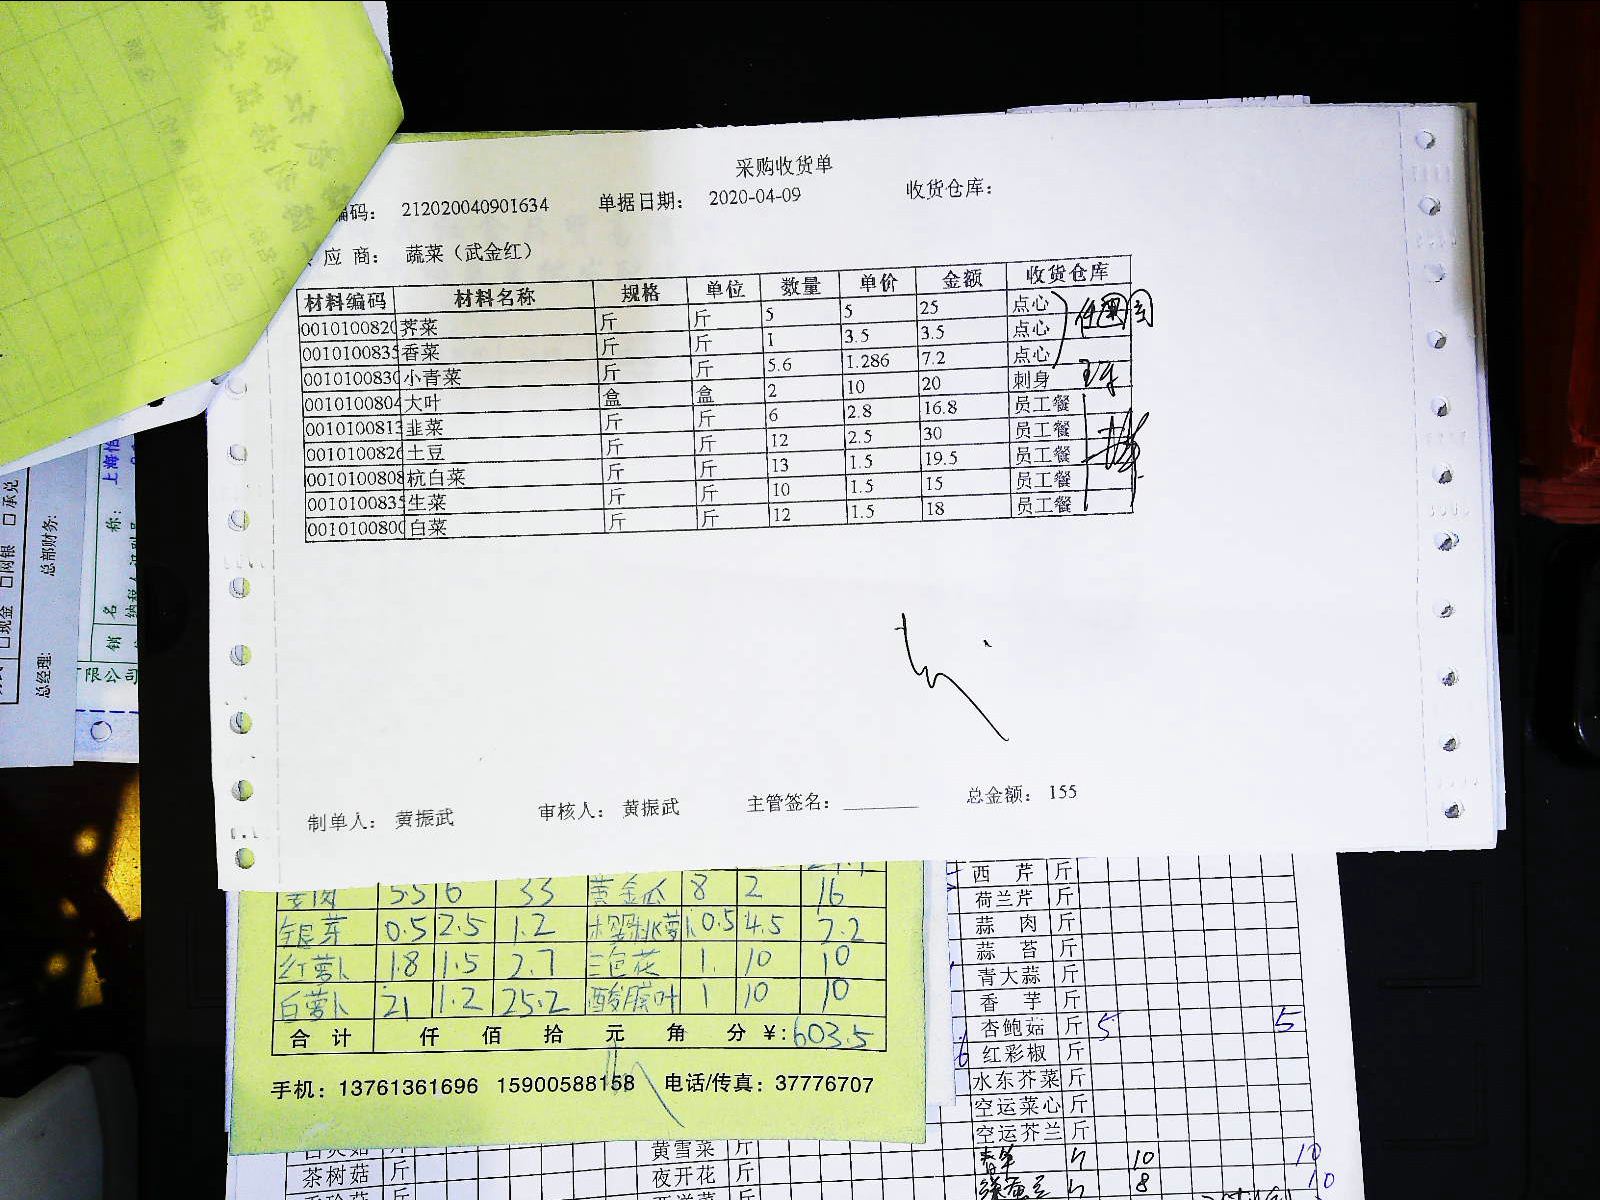 采购收货单
编码： 212020040901634 单据日期： 2020-04-09 收货仓库：
应 商： 蔬菜（武金红）
材料编码 材料名称 规格 单位 数量 单价 金额 收货仓库
0010100820 荠菜 斤 斤 5 5 25 点心
0010100835 香菜 斤 斤 1 3.5 3.5 点心
0010100830 小青菜 斤 斤 5.6 1.286 7.2 点心
0010100804 大叶 盒 盒 2 10 20 刺身
0010100813 韭菜 斤 斤 6 2.8 16.8 员工餐
0010100826 土豆 斤 斤 12 2.5 30 员工餐
0010100808 杭白菜 斤 斤 13 1.5 19.5 员工餐
0010100835 生菜 斤 斤 10 1.5 15 员工餐
0010100800 白菜 斤 斤 12 1.5 18 员工餐
制单人： 黄振武 审核人： 黄振武 主管签名： 总金额： 155
5.5 6 33 黄金瓜 8 2 16
银芽 0.5 2.5 1.2 0.5 4.5 2.2
红萝卜 1.8 1.5 2.7 三色花 1 10 10
白萝卜 21 1.2 25.2 酸膜叶 1 10 10
合 计 仟 佰 拾 元 角 分 ¥: 603.5
手机：13761361696 15900588158 电话/传真：37776707
西 芹 斤
荷兰芹 斤
蒜 肉 斤
蒜 苔 斤
青大蒜 斤
香 芋 斤
杏鲍菇 斤 5 5
红彩椒 斤
水东芥菜 斤
空运菜心 斤
空运芥兰 斤
10 10
8 10
黄雪菜 斤
茶树菇 斤 夜开花 斤
□现金 □网银 □承兑
总经理: 总部财务:
上海
销 名 称:
有限公司